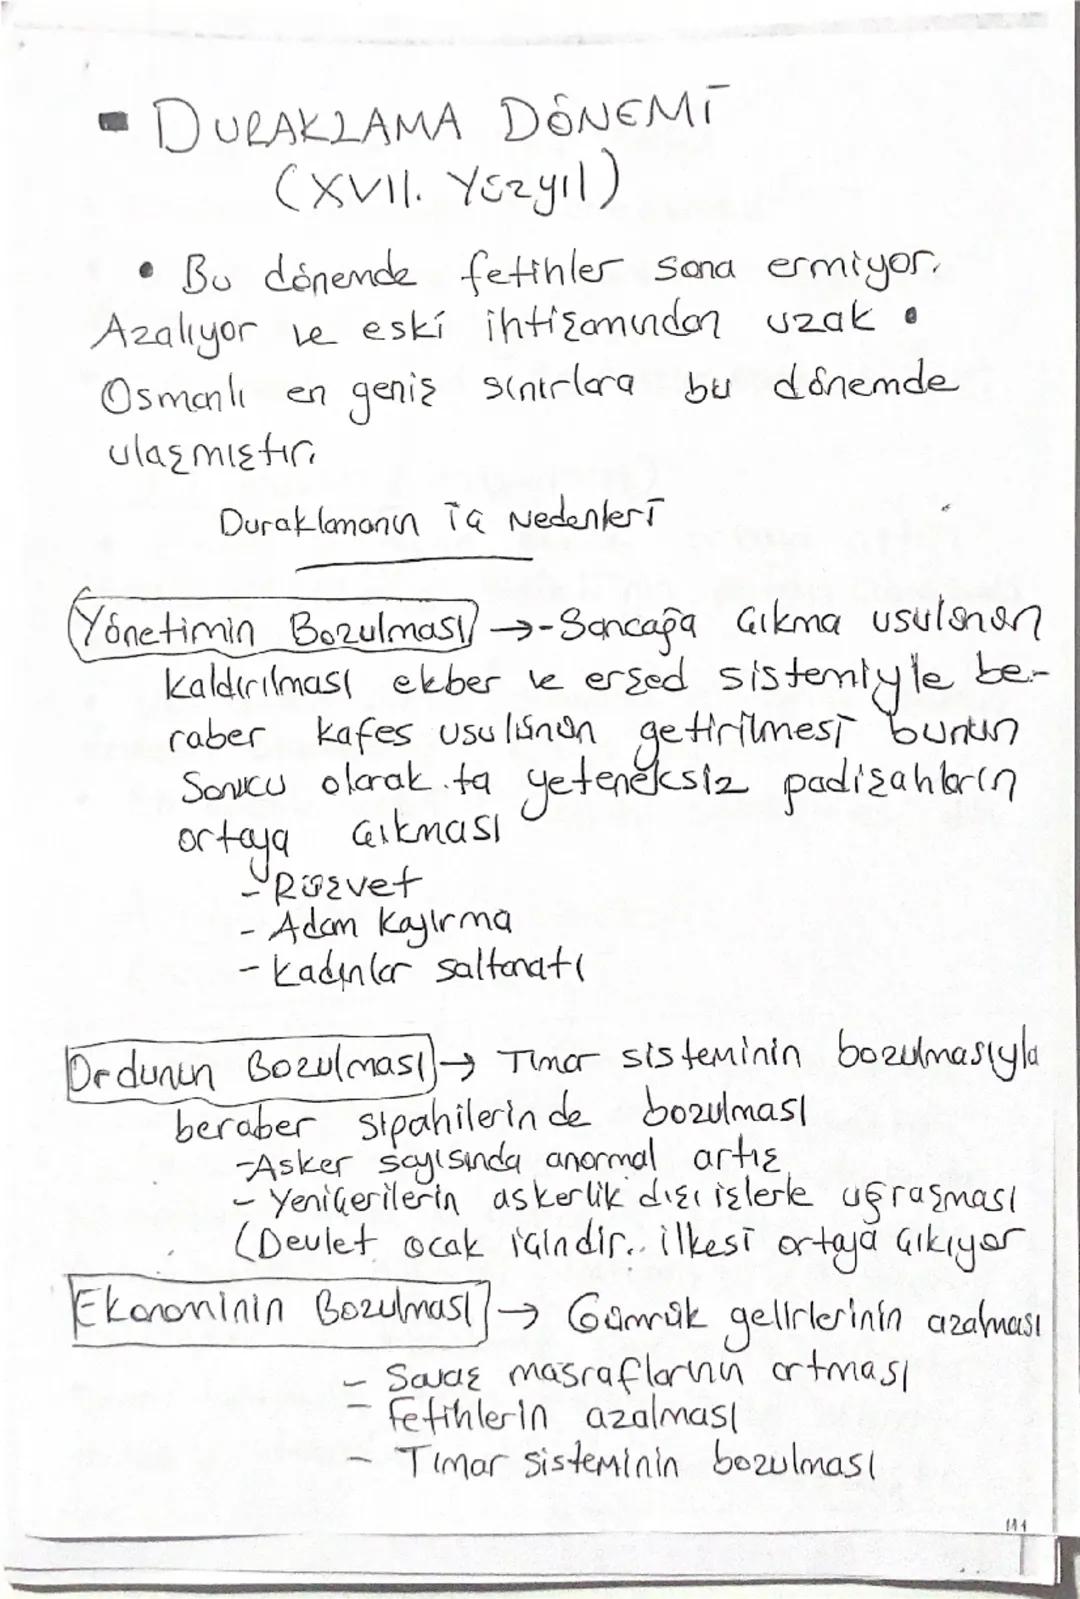 - DURAKLAMA DÖNEMİ
(XVII. Yüzyıl)
• Bu dönemde fetihler sona ermiyor.
Azalıyor ve eski ihtişamından uzak •
Osmanlı en geniş sınırlara bu dönemde
ulaşmıştır.
Duraklamanın İç Nedenleri
Yönetimin Bozulması → - Sancağa çıkma usulünün
kaldırılması ekber ve erşed sistemiyle be-
raber kafes usulünün getirilmesi bunun
Sonucu olarak ta yeteneksiz padişahların
ortaya çıkması
- Rüşvet
- Adam kayırma
- kadınlar saltanatı
Ordunun Bozulması → Tımar sisteminin bozulmasıyla
beraber sipahilerin de bozulması
- Asker sayısında anormal artış
- Yeniçerilerin askerlik dışı işlerle uğraşması
(Devlet ocak içindir.. ilkesi ortaya çıkıyor
Ekonominin Bozulması → Gümrük gelirlerinin azalması
- Savaş masraflarının artması
- Fetihlerin azalması
- Tımar sisteminin bozulması